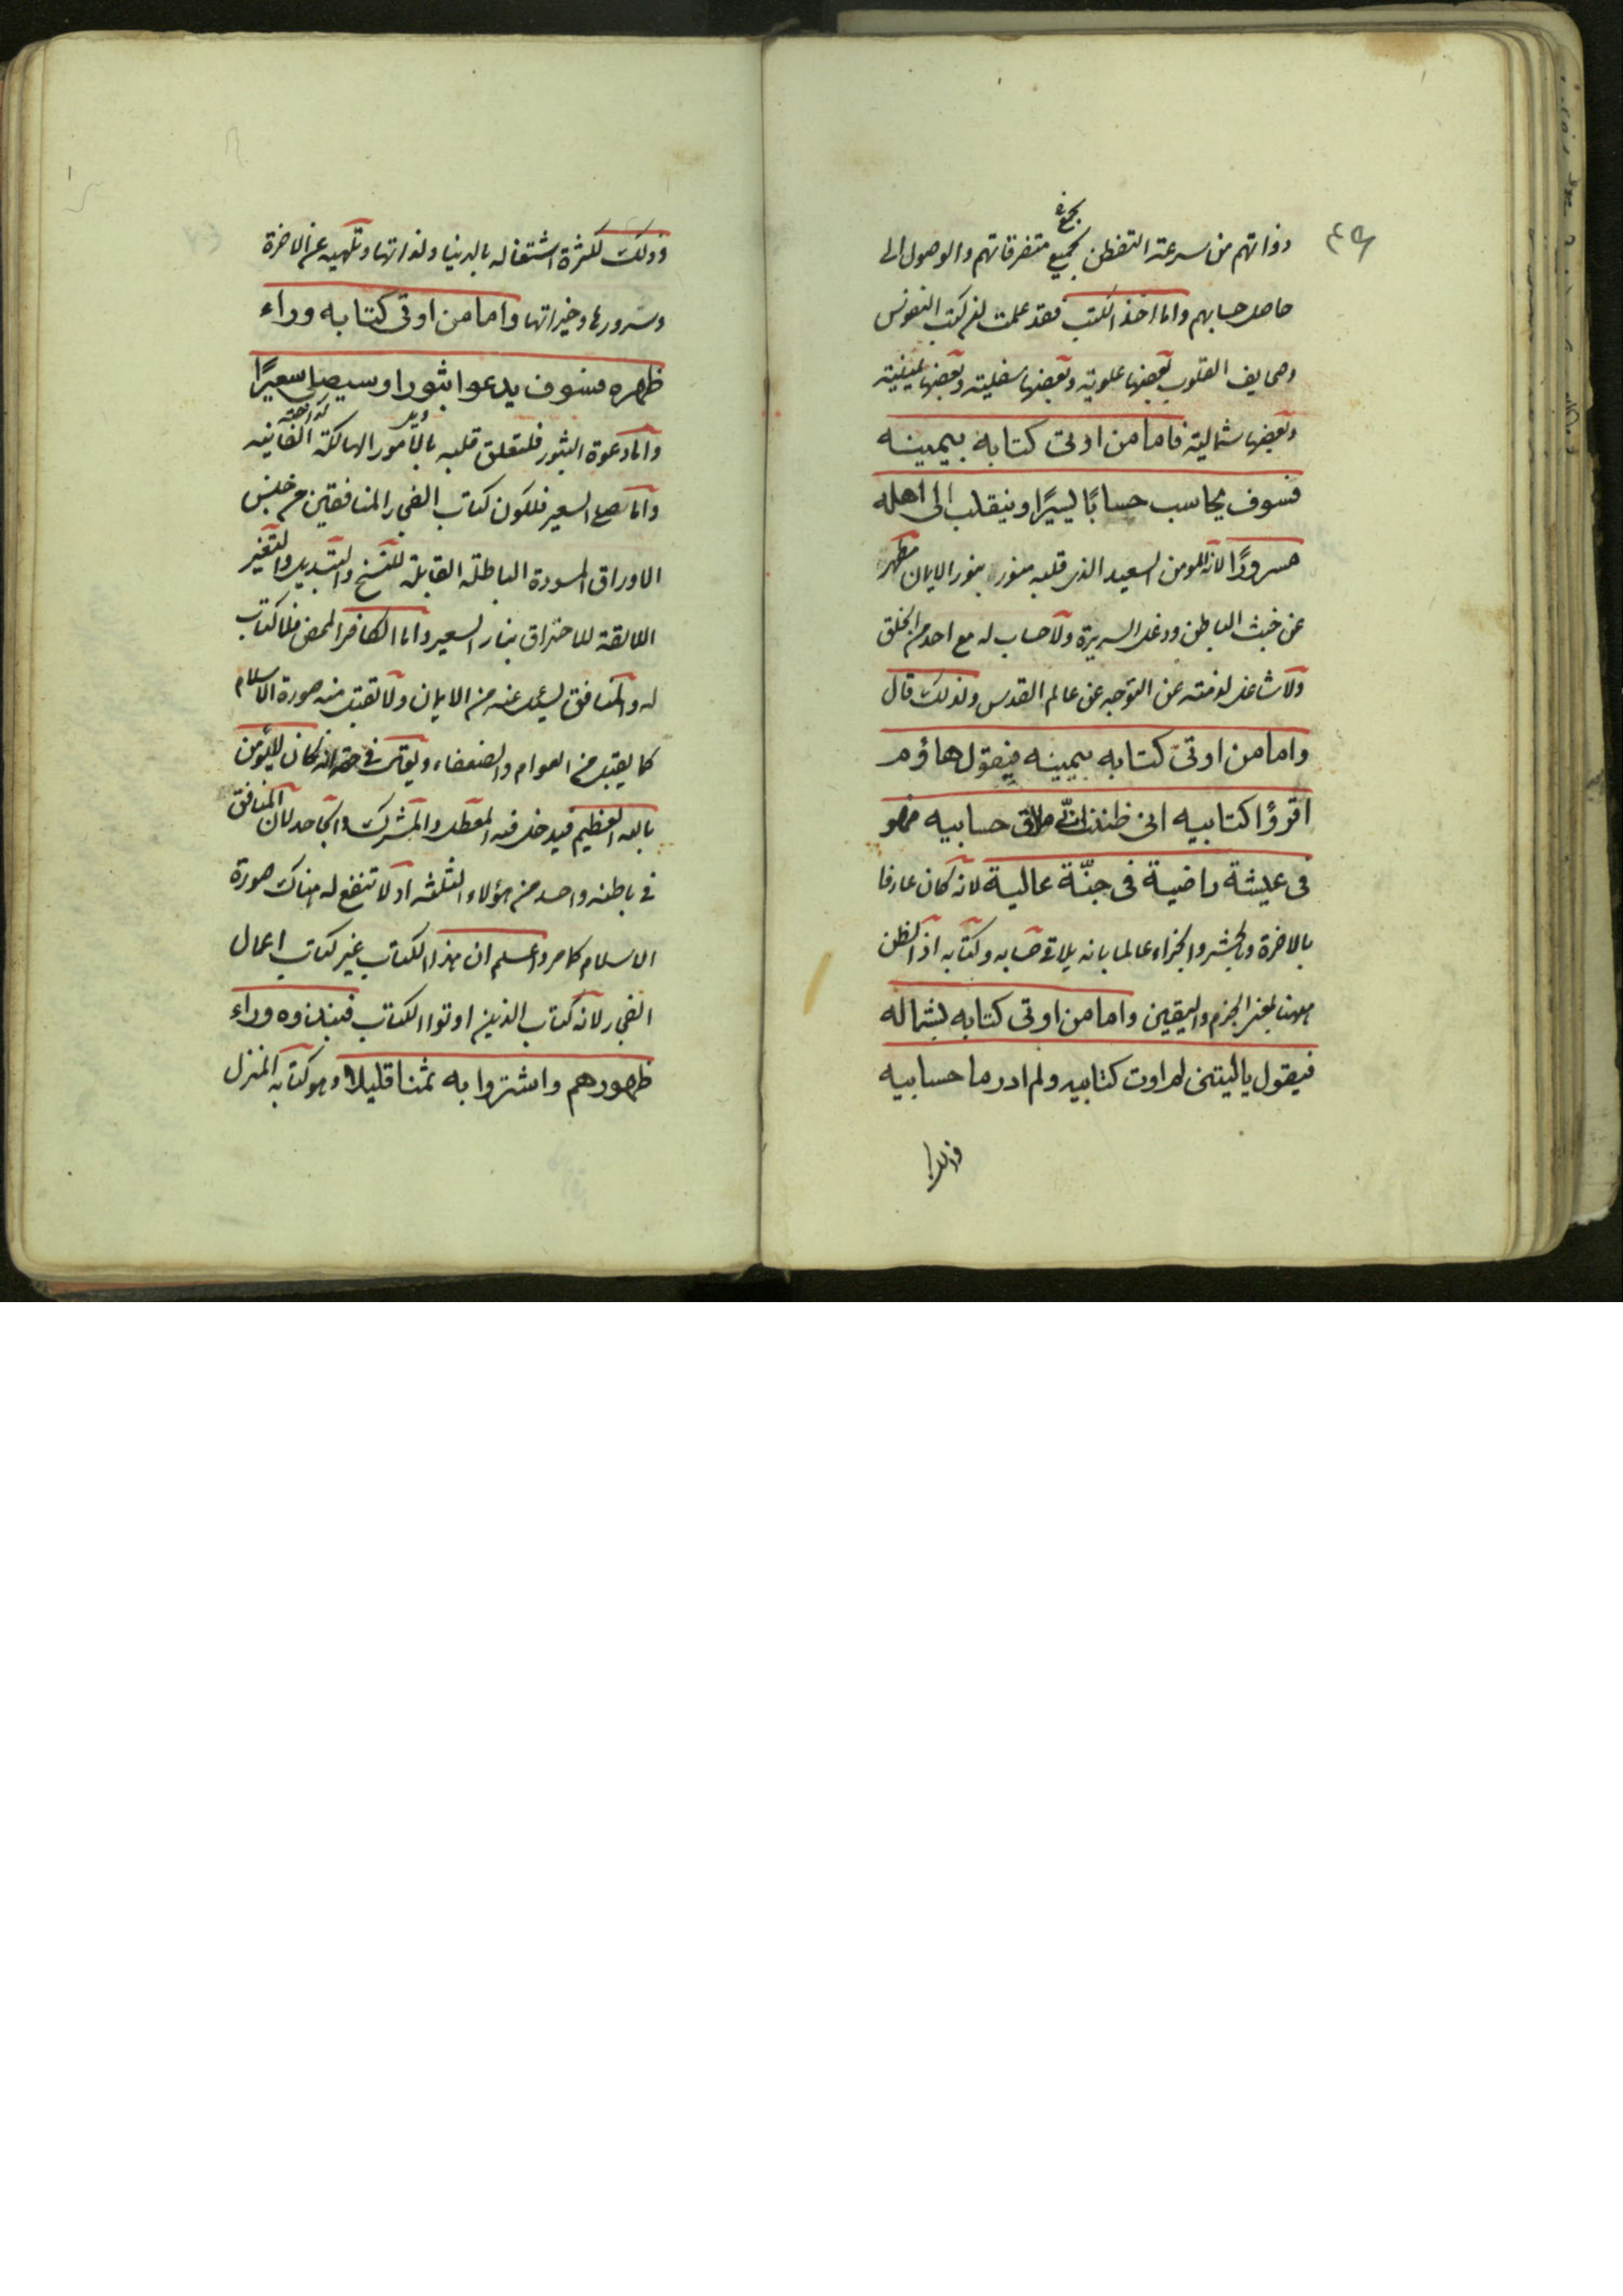 ذواتهم من سرعة التفطن بجميع متفرقاتهم والوصول الى
حاصل حسابهم واما اخذ الكتب فقد علمت ان كتب النفوس
وصحايف القلوب بعضها علوية وبعضها سفلية وبعضها يمينية
وبعضها شمالية فاما من اوتى كتابه بيمينه
فسوف يحاسب حسابًا يسيرًا وينقلب الى اهله
مسرورًا لانه المومن السعيد الذى قلبه منور بنور الايمان مطهر
عن خبث الباطن ودغل السريرة ولا حساب له مع احد من الخلق
ولا شاغل لذمته عن التوجه عن عالم القدس ولذلك قال
واما من اوتى كتابه بيمينه فيقول هاؤم
اقرؤا كتابيه انى ظننت انّى ملاق حسابيه فهو
فى عيشة راضية فى جنّة عالية لانه كان عارفا
بالاخرة والحشر والجزاء عالما بانه يلاقى حسابه وكتابه اذ الظن
ههنا بمعنى الجزم واليقين واما من اوتى كتابه بشماله
فيقول ياليتنى لم اوت كتابيه ولم ادر ما حسابيه
وذلك
وذلك لكثرة اشتغاله بالدنيا ولذاتها وتلهيه عن الاخرة
وسرورها وخيراتها واما من اوتى كتابه وراء
ظهره فسوف يدعوا ثبورا وسيصلى سعيرًا
واما دعوة الثبور فلتعلق قلبه بالامور الهالكة الفانيه
واما صلى السعير فلكون كتاب الفجار المنافقين من جنس
الاوراق المسودة الباطلة القابلة للنسخ والتبديل والتغير
اللايقة للاحتراق بنار السعير واما الكافر المحض فلا كتاب
له والمنافق يسئل عنه من الايمان ولا تقبل منه صورة الاسلام
كما يقبل من العوام والضعفاء ويقال فى حقه انه كان لا يؤمن
بالله العظيم فيدخل فيه المعطل والمشرك والجاحد لان المنافق
فى باطنه واحد من هؤلاء الثلثه اذ لا تنفع له هناك صورة
الاسلام كما مر واعلم ان هذا الكتاب غير كتاب اعمال
الفجار لانه كتاب الذين اوتوا الكتاب فنبذوه وراء
ظهورهم واشتروا به ثمنا قليلا وهو كتابه المنزل